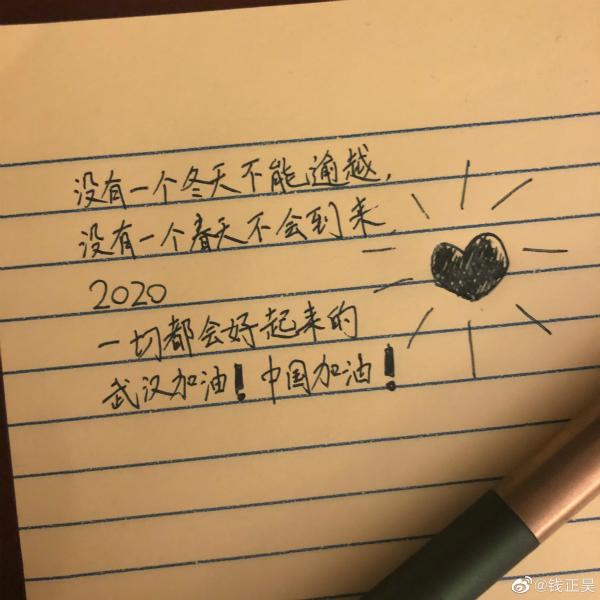 没有一个冬天不能逾越,
没有一个春天不会到来
2020
一切都会好起来的
武汉加油!中国加油!
@钱正昊